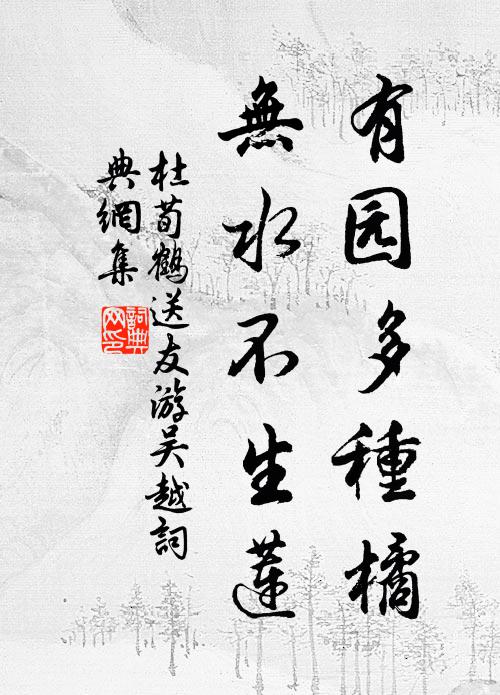 有园多種橘
無水不生蓮
杜荀鶴送友游吴越詞
典網集
詞典网印